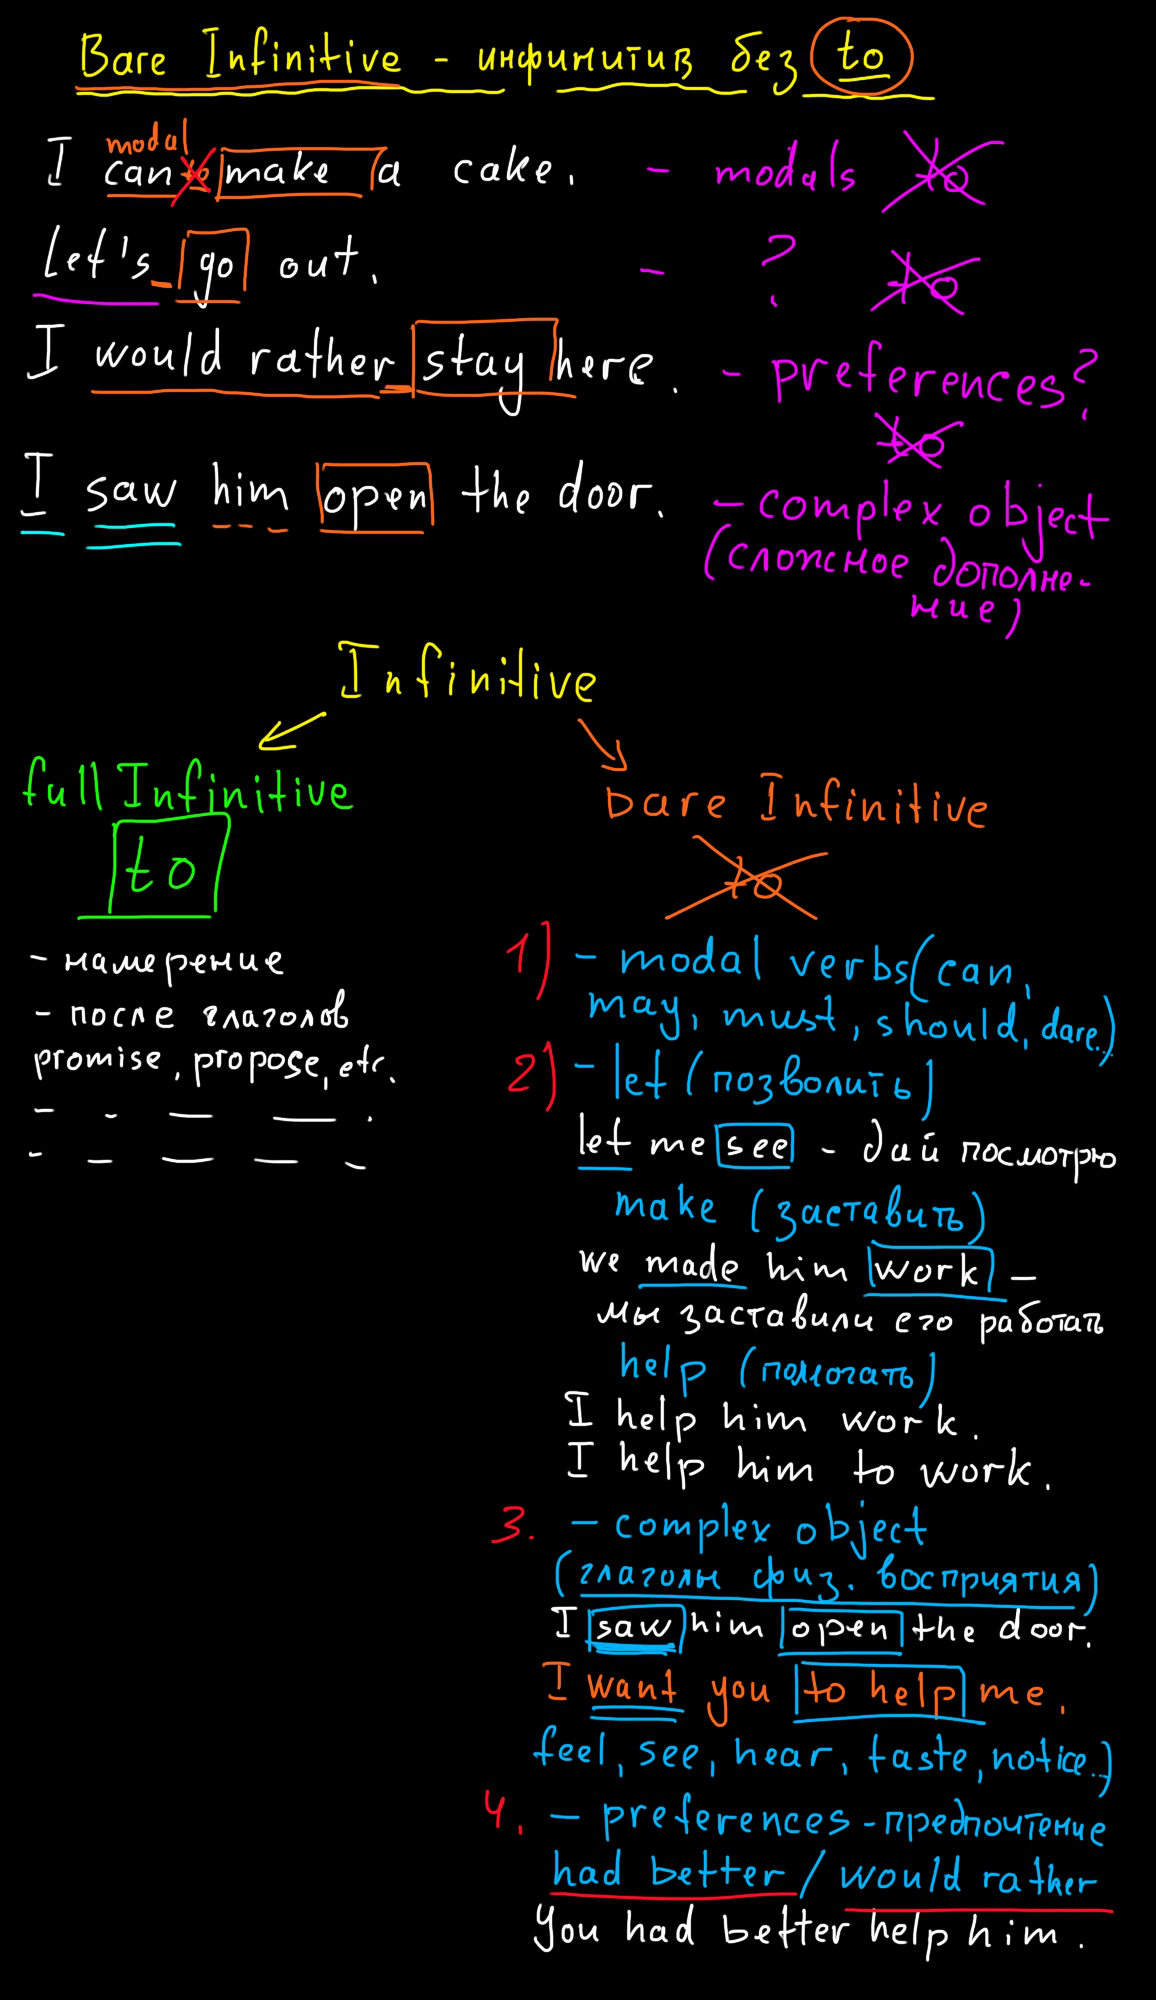 Bare Infinitive - инфинитив без to
modal
I can to make a cake. - modals to
Let's go out. - ? to
I would rather stay here. - preferences?
to
I saw him open the door. - complex object
(сложное дополне-
ние)
Infinitive
full Infinitive
to
- намерение
- после глаголов
promise, propose, etc.
bare Infinitive
to
1) - modal verbs (can,
may, must, should, dare..)
2) - let (позволить)
let me see - дай посмотрю
make (заставить)
we made him work -
мы заставили его работать
help (помогать)
I help him work.
I help him to work.
3. - complex object
(глаголы физ. восприятия)
I saw him open the door.
I want you to help me.
feel, see, hear, taste, notice..)
4. - preferences - предпочтение
had better / would rather
You had better help him.